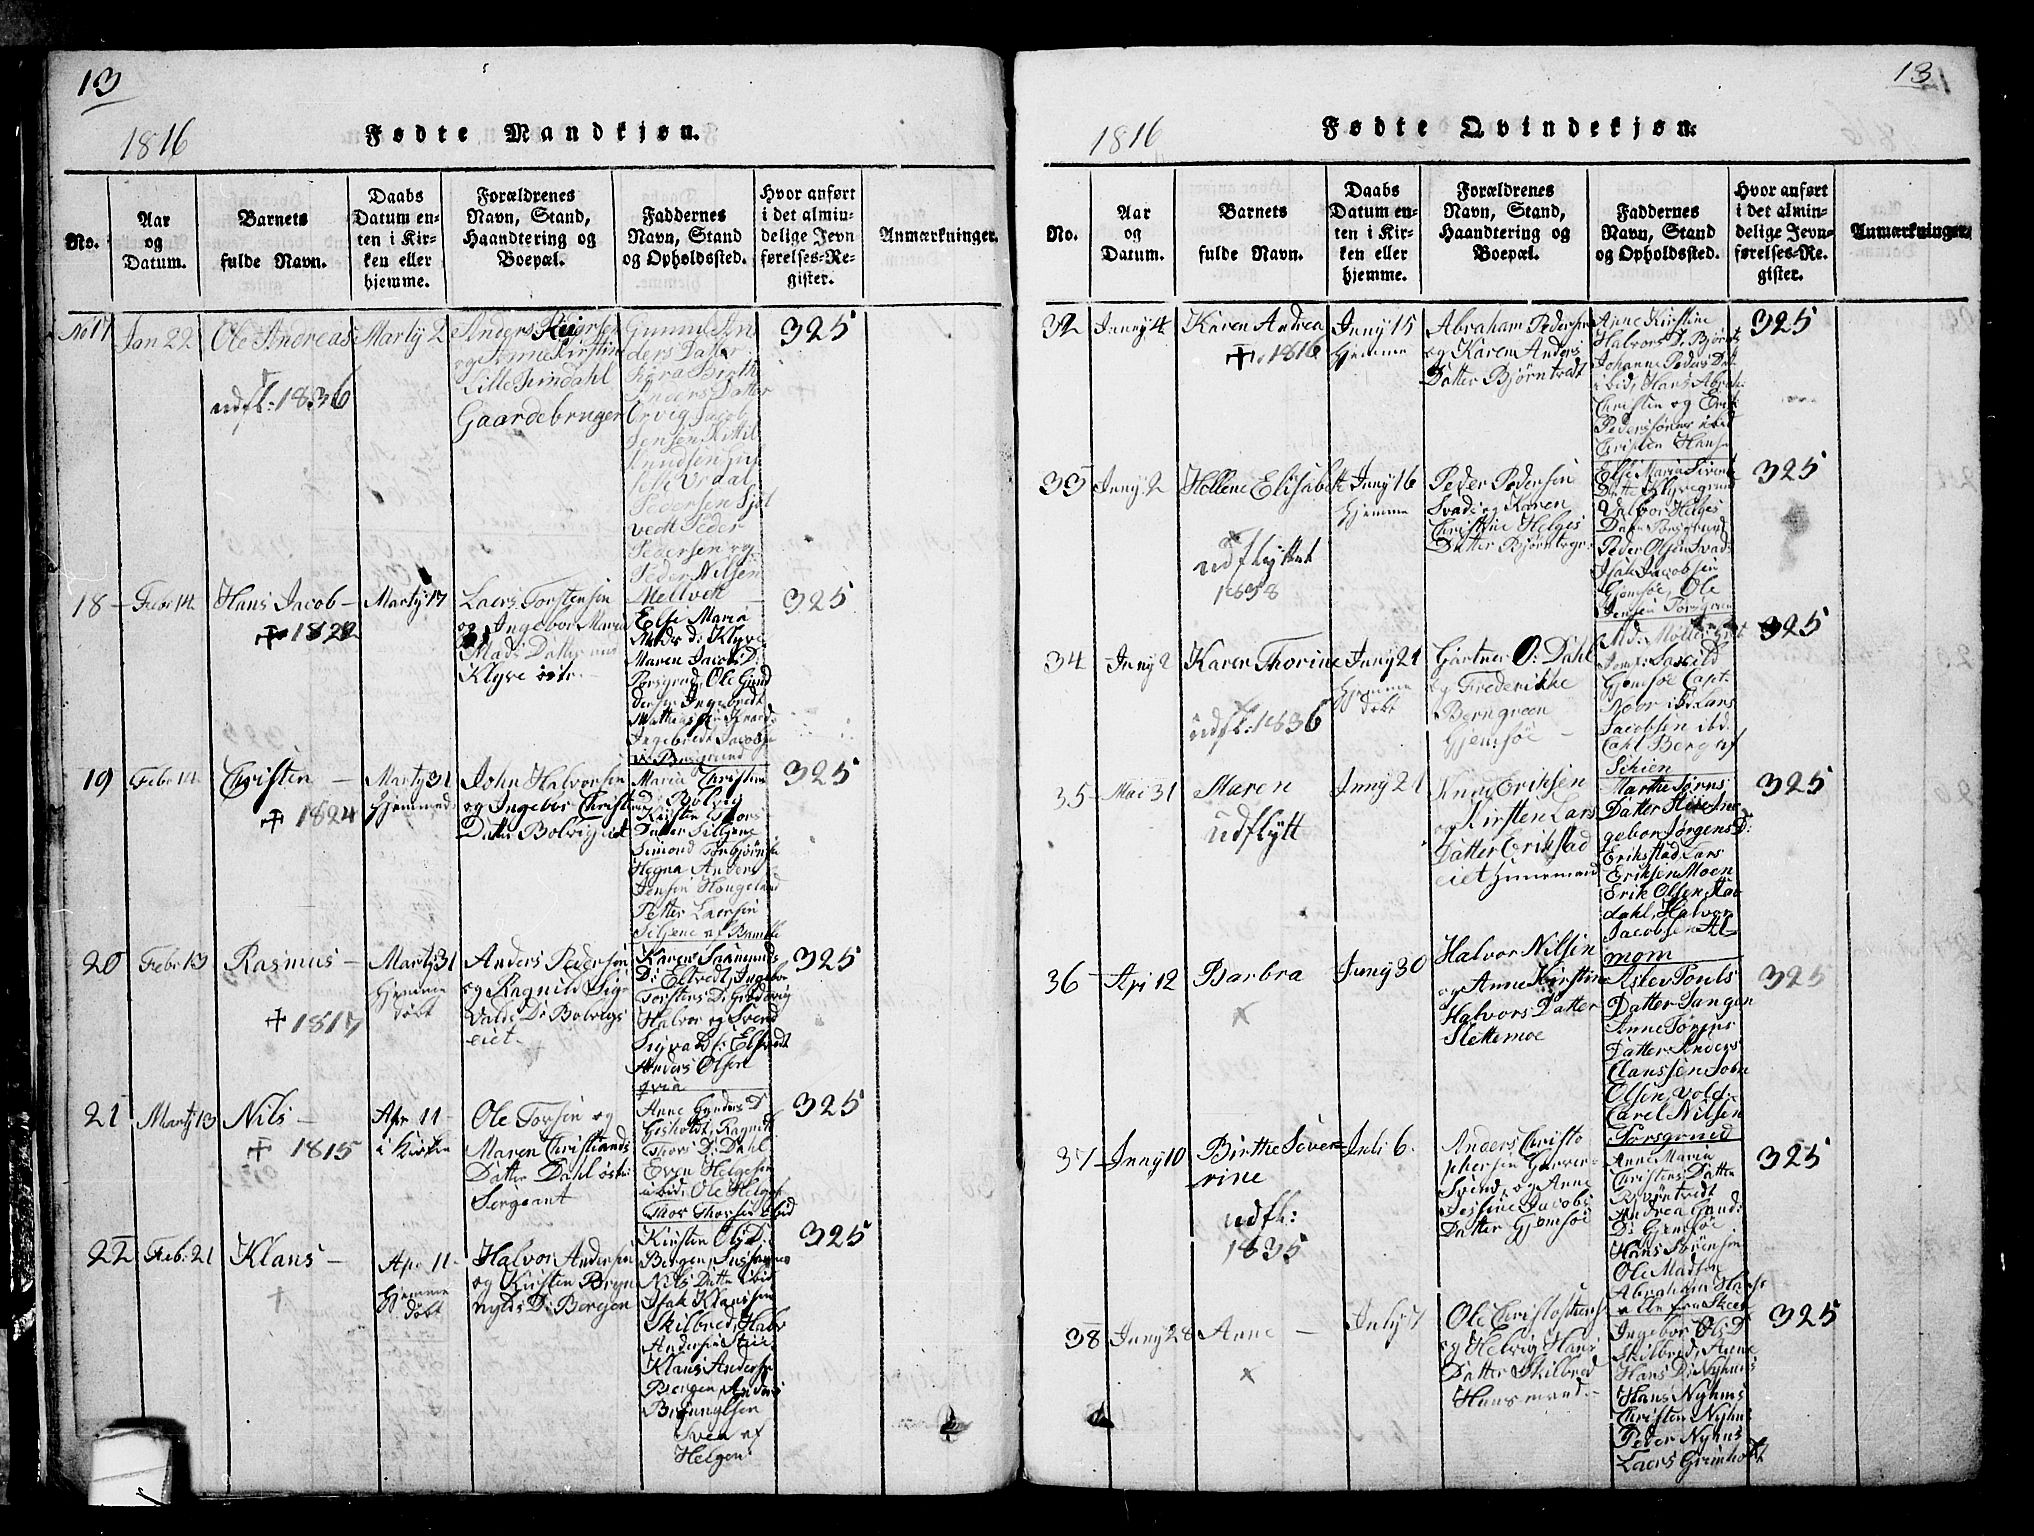 13
1816
Fødte Mandkjøn.
No.
Aar
og
Datum.
Barnets
fulde Navn.
Daabs
Datum en-
ten i Kir-
ken eller
hjemme.
Forældrenes
Navn, Stand,
Haandtering og
Boepæl.
Faddernes
Navn, Stand
og Opholdssted.
Hvor anført
i det almin-
delige Jevn-
førelses-Re-
gister.
Anmærkninger.
No 17
Jan 22
Ole Andreas
udfl: 1836
Marty 2
Anders Reiersen
og Anne Kirstin
Lille
Gaardebruger
Gunnild An
ders Datter
Berthe
Anders Datter
Ørvig Jacob
Jensen Kittil
Knudsen
Vraal
Pedersen
vedt Peder
Pedersen og
Peder Nilsen
Melvedt
325
18 -
Febr 14
Hans Jacob -
✝ 1822
Marty 17
Laers Torstensen
og Ingebor Maria
Mads Datter
Klyve østr -
Else Maria
Mads d: Klyve
Maren Jacobs D:
Porsgrud, Ole Gund
dersen Ingebredt
Mathiassen
Ingebredt Jacobse
Porsgrund
325
19
Febr 14
Christen -
✝ 1824
Marty 31
Hjemmed:
John Halvorsen
og Ingebor Christens
Datter Bolvig eiet
Maria Christens
D: Bolvig
Kirsten Thors
Datter Siljene
Simond Torbjørnse
Hegna Anders
Jensen Hougeland
Petter Laersen
Siljene af Bamble
325
20
Febr 13
Rasmus -
✝ 1817
Marty 31
Hjemme
døbt
Anders Pedersen
og Ragnild Sig-
valds D: Bolvigs
eiet -
Karen Saamunds
D: Elsvedt, Ingebor
Torstens D: Grødevig
Halvor og Svend
Sigvalds: Elsvedt
Anders Olsen
325
21
Marty 13
Nils -
✝ 1815
Apr 11 -
i Kirken
Ole Torsen og
Maren Christiands
Datter Dahl østr
Sergeant
Anne Gunders D
Gisholt, Ragnild
Thors D: Dahl
Even Helgesen
ibid, Ole Helges
Thor Thorsen ibid
325
22
Feb: 21
Klaus -
✝
Apr 11 -
Hjemme
døbt
Halvor Andersen
og Kirsten Bryn
nylds D: Bergen
Kirsten Ols D:
Bergen, Susanna
Nils Datter ibid
Isak Klaussen
Skilbred, Halv
Andersen
Klaus Anderse
Bergen, Anders
Brynnylsen
Sven af
Helgen
325
13
1816
Fødte Qvindekjøn.
No.
Aar
og
Datum.
Barnets
fulde Navn.
Daabs
Datum en-
ten i Kir-
ken eller
hjemme.
Forældrenes
Navn, Stand,
Haandtering og
Boepæl.
Faddernes
Navn, Stand
og Opholdssted.
Hvor anført
i det almin-
delige Jevn-
førelses-Re-
gister.
Anmærkninger.
32
Juny 4
Karen Andrea
✝ 1816
Juny 15
Hjemme
Abraham Pederse
og Karen Anders
Datter Bjørntvedt
Anne Kirstine
Halvors D: Bjørntv
Johanne Peders Datt
ibid, Hans Abrah
Christen og Erik
Pederssønner ibid
Christen Hanse
325
33
Juny 2
Hellene Elisabeth
udflyttet
1838
Juny 16
Hjemme
Peder Pedersen
Svade og Karen
Christine Helges
Datter Bjørntvgr.
Else Maria Siverts
Datter Klyvegrund
Valbor Helges
Datter Porsgrund
Peder Olsen Svad
Isak Jacobsen
Gjemsøe, Ole
Jensen Porsgrun
325
34
Juny 2
Karen Thorine
udfl: 1836
Juny 21
Hjemme
døbt
Gartner O: Dahl
og Frederikke
Berngreen
Gjemsøe -
Md: Møller
Jomf: Saxvild
Gjemsøe Capt:
Noor ibd Lars
Jacobsen ibd.
Carl Berg af
Schien
325
35
Mai 31
Maren
udflytt
Juny 21
Knud Eriksen
og Kirsten Lars
Datter Erikstad
eiet Huusmand
Marthe Tørns
Datter Stie, In
gebor Jørgens D:
Erikstad, Lars
Eriksen Moen
Erik Olsen Stav
dahl, Halvor
Jacobsen
mom
325
36
Apr 12
Barbra
x
Juny 30
Halvor Nilsen
og Anne Kirstine
Halvors Datter
Slettemoe
Aslev Pouls
Datter Sangen
Anne Tørres
Datter Anders
Claussen Tobe
Olsen, Vold
Carel Nilsen
Porsgrund
325
37
Juny 10
Birthe Sever-
rine
udfl:
1835
Juli 6.
Anders Christo
phersen Garver-
Svend, og Anne
Jessine Jacobs
Datter Gjemsøe
Anne Maria
Christens Datter
Bjørntvedt
Andrea Gund:
D: Gjemsøe
Hans Sørensen
Ole Madsen
Abraham Hanse
alle fra Skien
325
38
Juny 28
Anne -
x
July 7
Ole Christophers
og Helvig Hans
Datter Skilbred
Huusmand -
Ingebor Ols D
Skilbred, Anne
Hans D: Nyhuus
Hans Nyhuus
Christen Nyhus
Peder Nyhus
Laers Grimholt
325